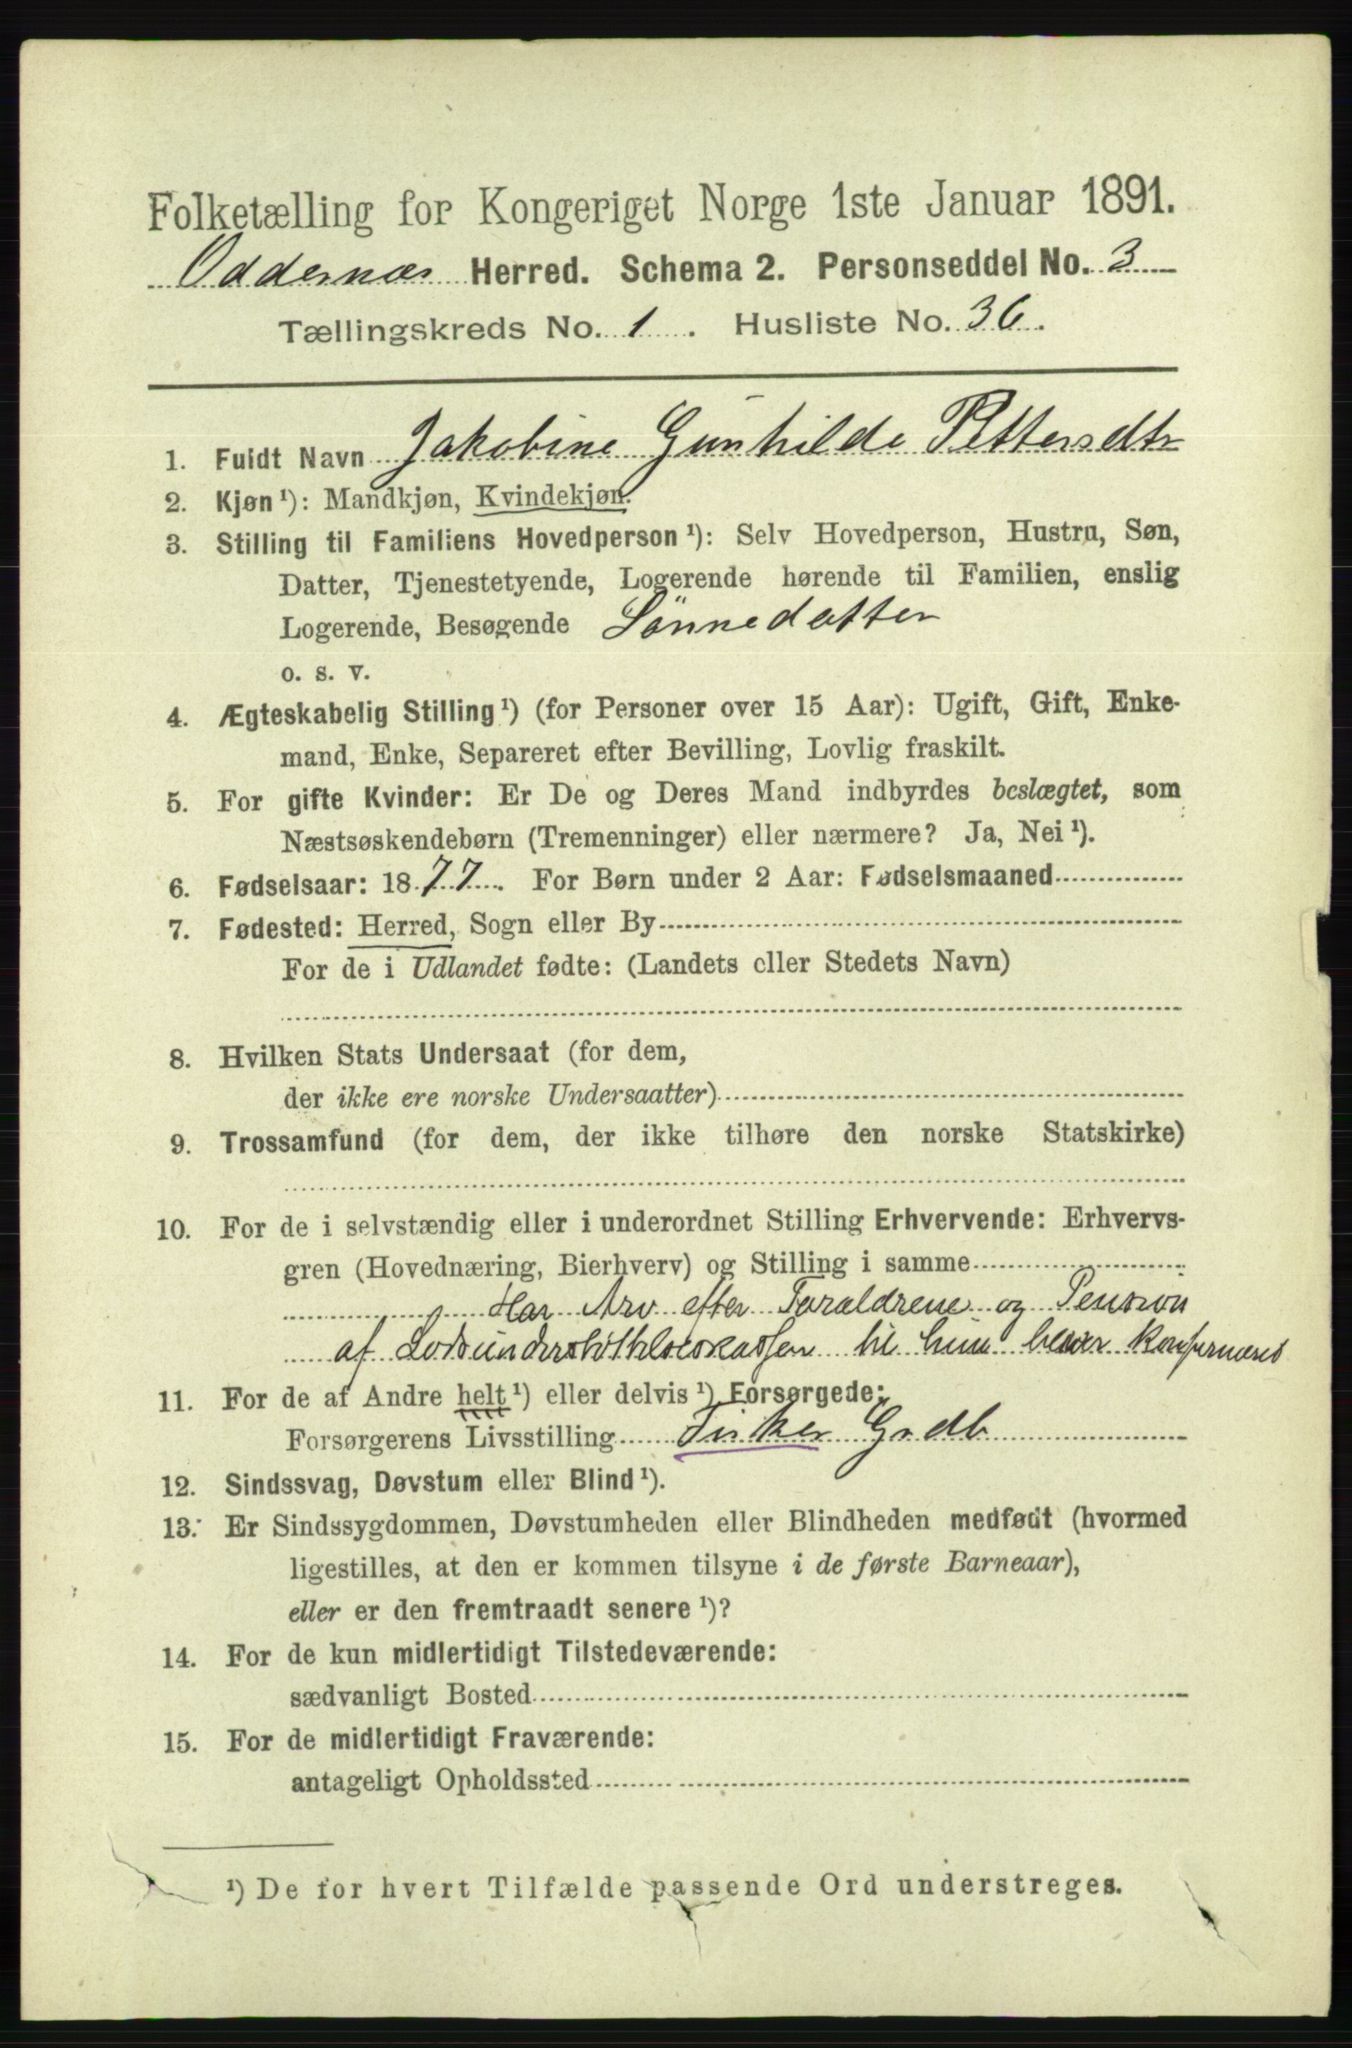 Folketælling for Kongeriget Norge 1ste Januar 1891.
Oddernæs Herred. Schema 2. Personseddel No. 3
Tællingskreds No. 1. Husliste No. 36.
1. Fuldt Navn Jakobine Gunhilde Pettersdtr
2. Kjøn ¹): Mandkjøn, Kvindekjøn.
3. Stilling til Familiens Hovedperson ¹): Selv Hovedperson, Hustru, Søn,
Datter, Tjenestetyende, Logerende hørende til Familien, enslig
Logerende, Besøgende Sønnedatter
o. s. v.
4. Ægteskabelig Stilling ¹) (for Personer over 15 Aar): Ugift, Gift, Enke-
mand, Enke, Separeret efter Bevilling, Lovlig fraskilt.
5. For gifte Kvinder: Er De og Deres Mand indbyrdes beslægtet, som
Næstsøskendebørn (Tremenninger) eller nærmere? Ja, Nei ¹).
6. Fødselsaar: 1877. For Børn under 2 Aar: Fødselsmaaned
7. Fødested: Herred, Sogn eller By
For de i Udlandet fødte: (Landets eller Stedets Navn)
8. Hvilken Stats Undersaat (for dem,
der ikke ere norske Undersaatter)
9. Trossamfund (for dem, der ikke tilhøre den norske Statskirke)
10. For de i selvstændig eller i underordnet Stilling Erhvervende: Erhvervs-
gren (Hovednæring, Bierhverv) og Stilling i samme
Har Arv efter Foræeldrene og Pension
af Lodsunderstøttelseskassen til hun bliver konfirmeret
11. For de af Andre helt ¹) eller delvis ¹) Forsørgede:
Forsørgerens Livsstilling Fisker Grdb
12. Sindssvag, Døvstum eller Blind ¹).
13. Er Sindssygdommen, Døvstumheden eller Blindheden medfødt (hvormed
ligestilles, at den er kommen tilsyne i de første Barneaar),
eller er den fremtraadt senere ¹)?
14. For de kun midlertidigt Tilstedeværende:
sædvanligt Bosted
15. For de midlertidigt Fraværende:
antageligt Opholdssted
¹) De for hvert Tilfælde passende Ord understreges.